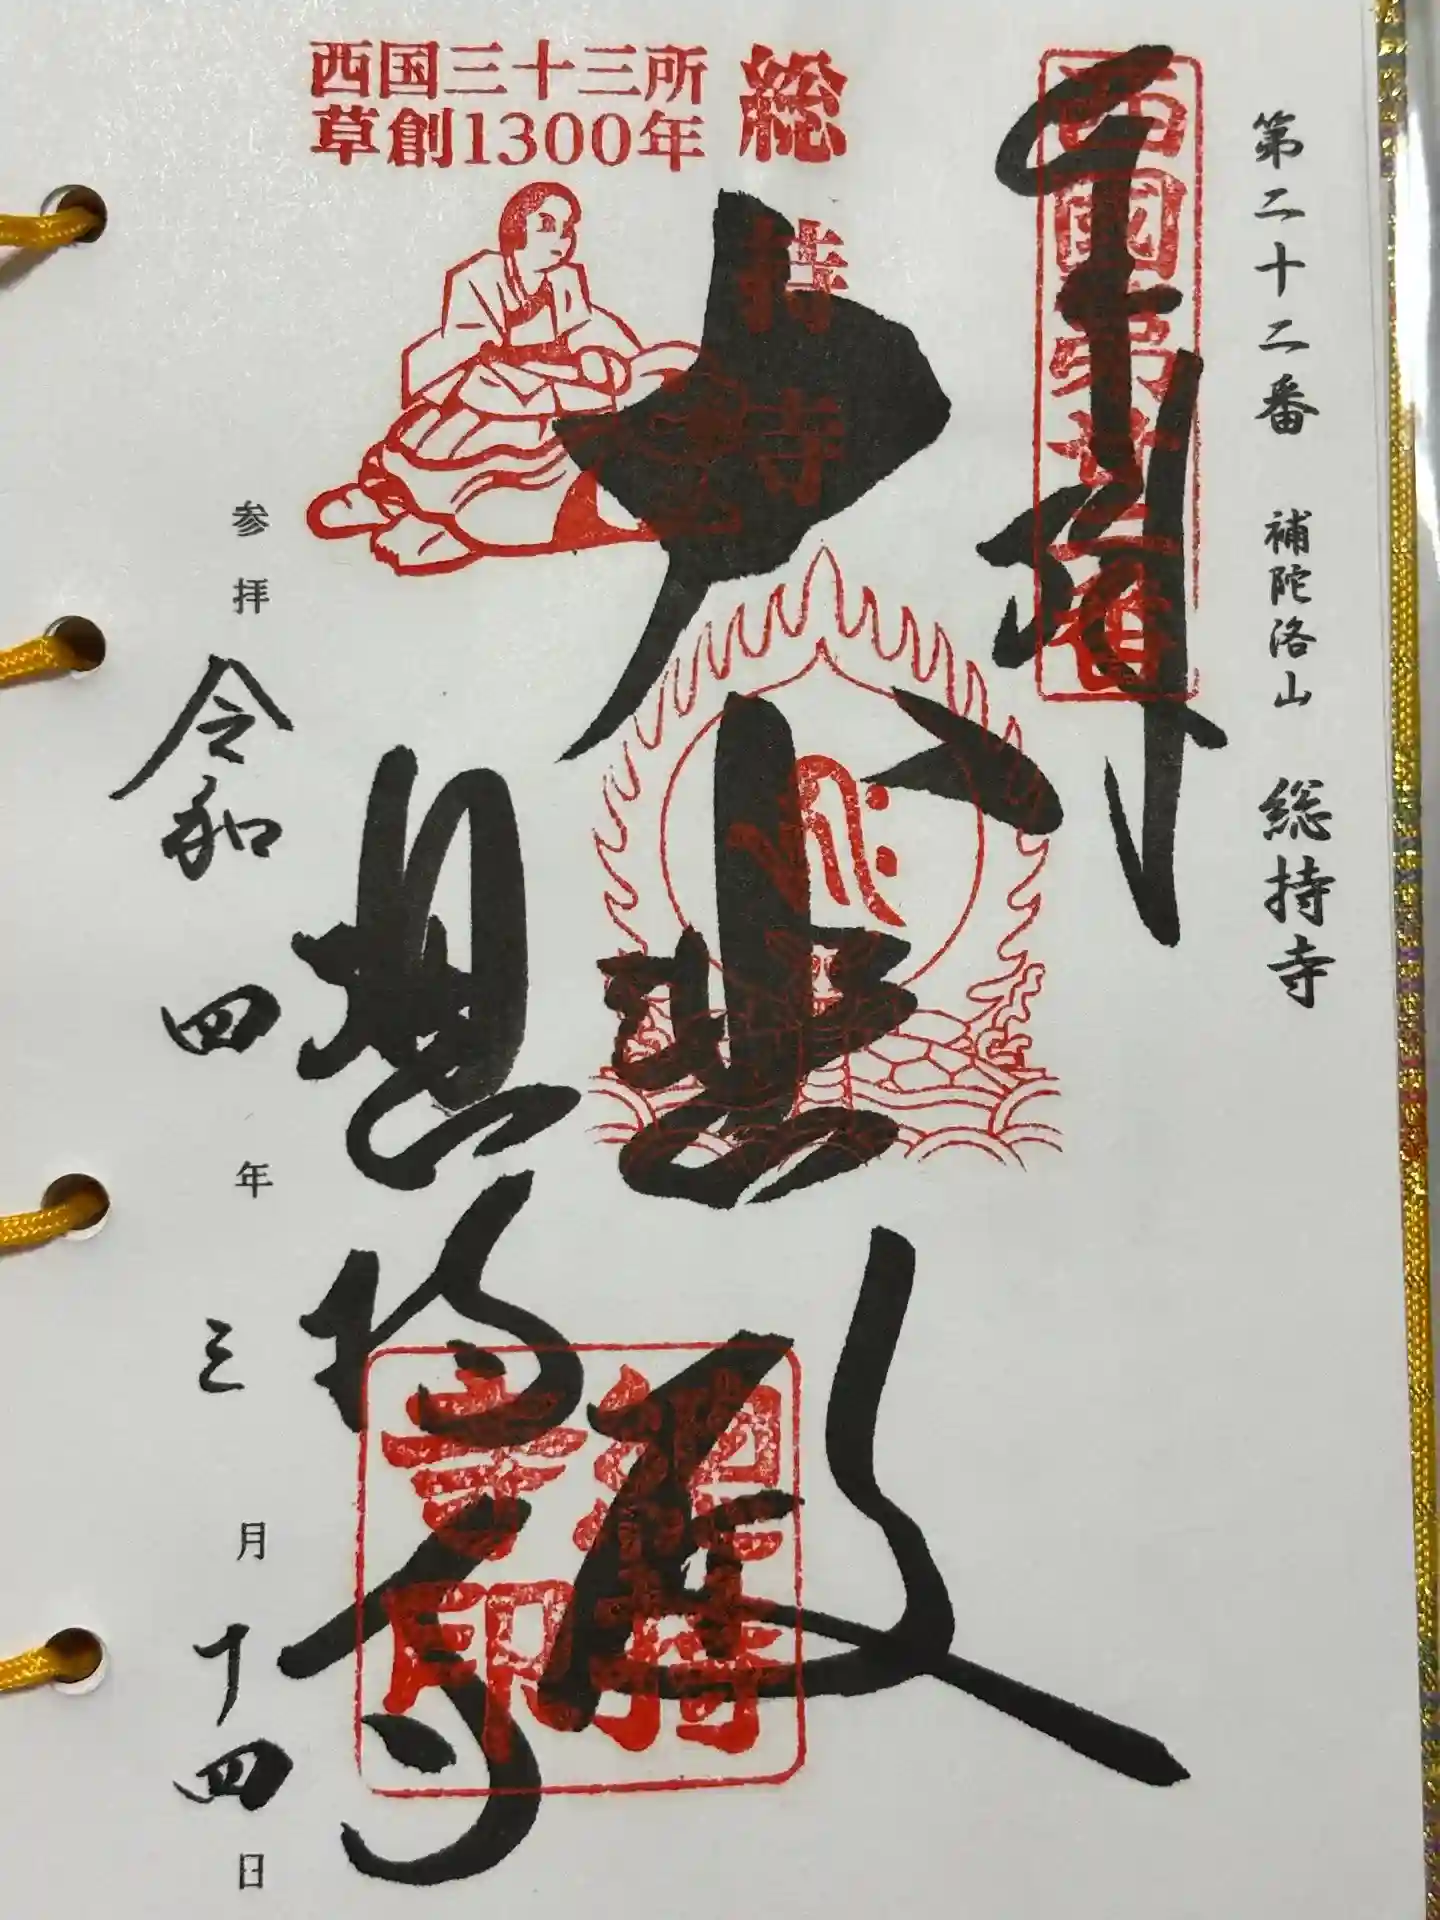 第二十二番 補陀洛山 総持寺
奉拝
西國第廿二番
大悲殿
総持寺
西国三十三所
草創1300年
総持寺
総持
寺印
参拝 令和四年三月十四日